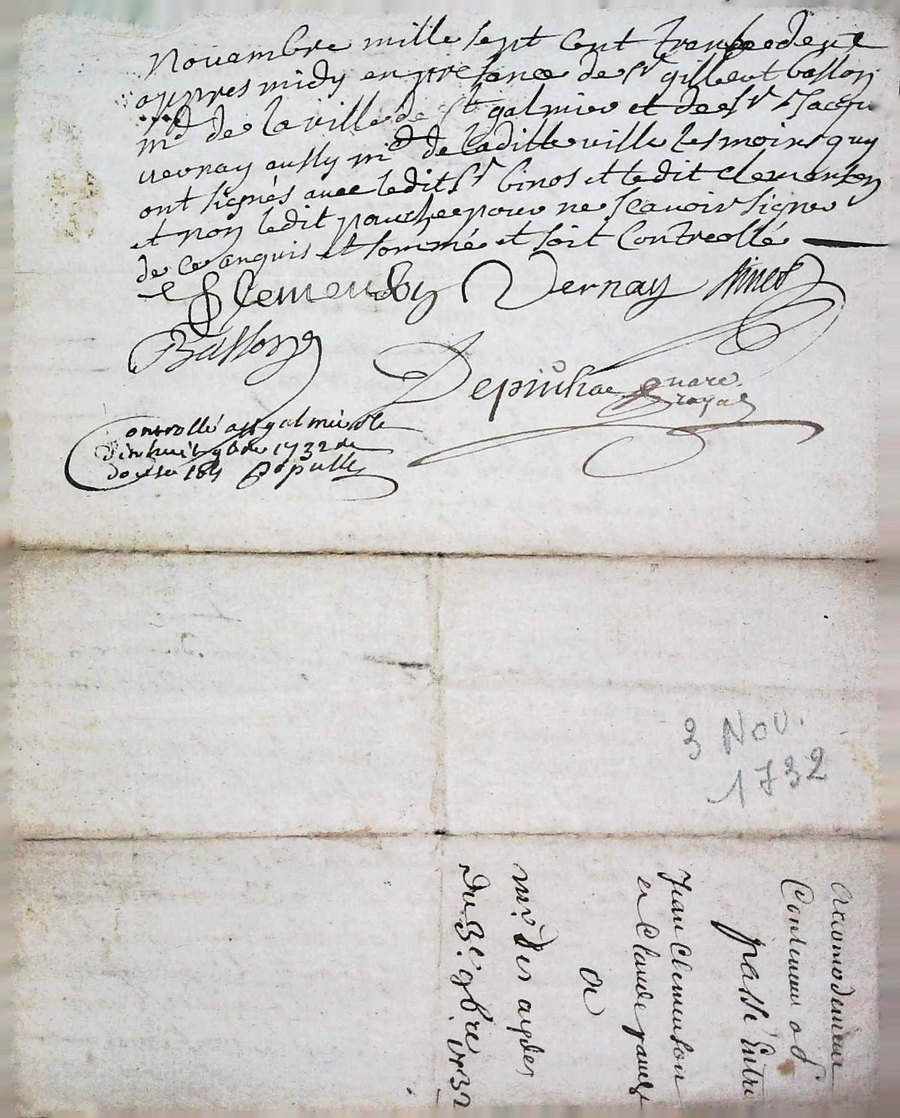 Novembre mille sept cent trentedeux
appres midy en presance de Sr gilbert basson
md de la ville de St galmier et de Sr Jacque
vernay aussy md de laditte ville tesmoins quy
ont signés avec ledit Sr binos et ledit clemenson
et non ledit pour ne scavoir signer
de ce anquis et sommé et soit Controllé
Vernay
Basson
nore
royal
Controllé a St galmier le
dixhuit 9bre 1732
douse
3 Nov.
1732
Accomodement
Contenant
passé Entre
Jean Clemenson
et Claude
a
mr
Du 3e 9bre 1732